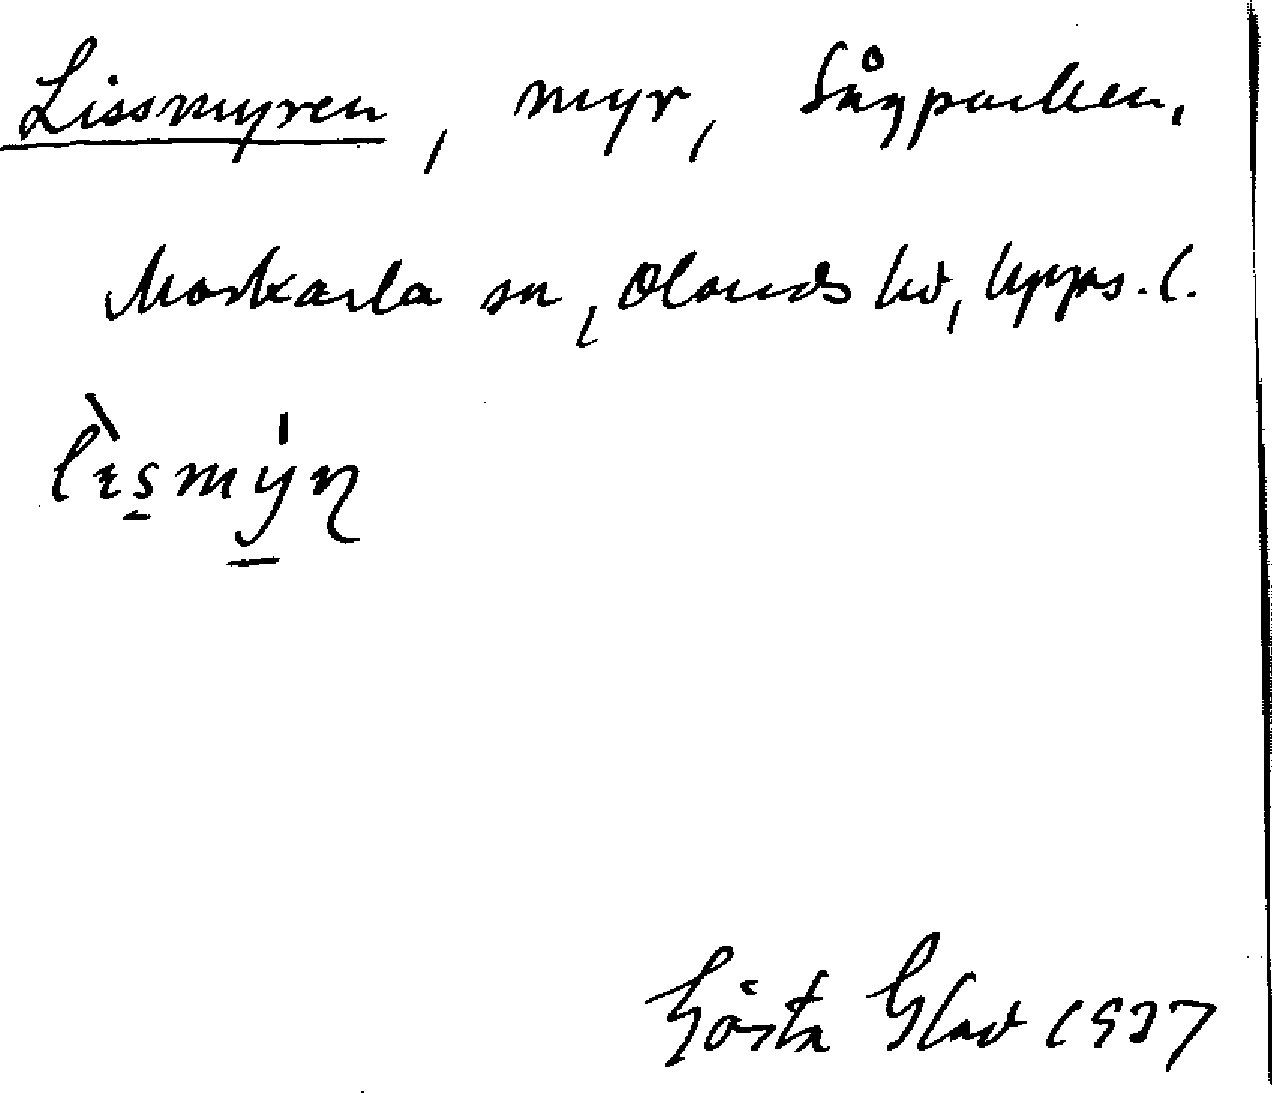 Lissmyren, myr, Sågparken,
Morkarla sn, Olands hd, Upps. l.
lìsmýɳ
Gösta Glad 1937